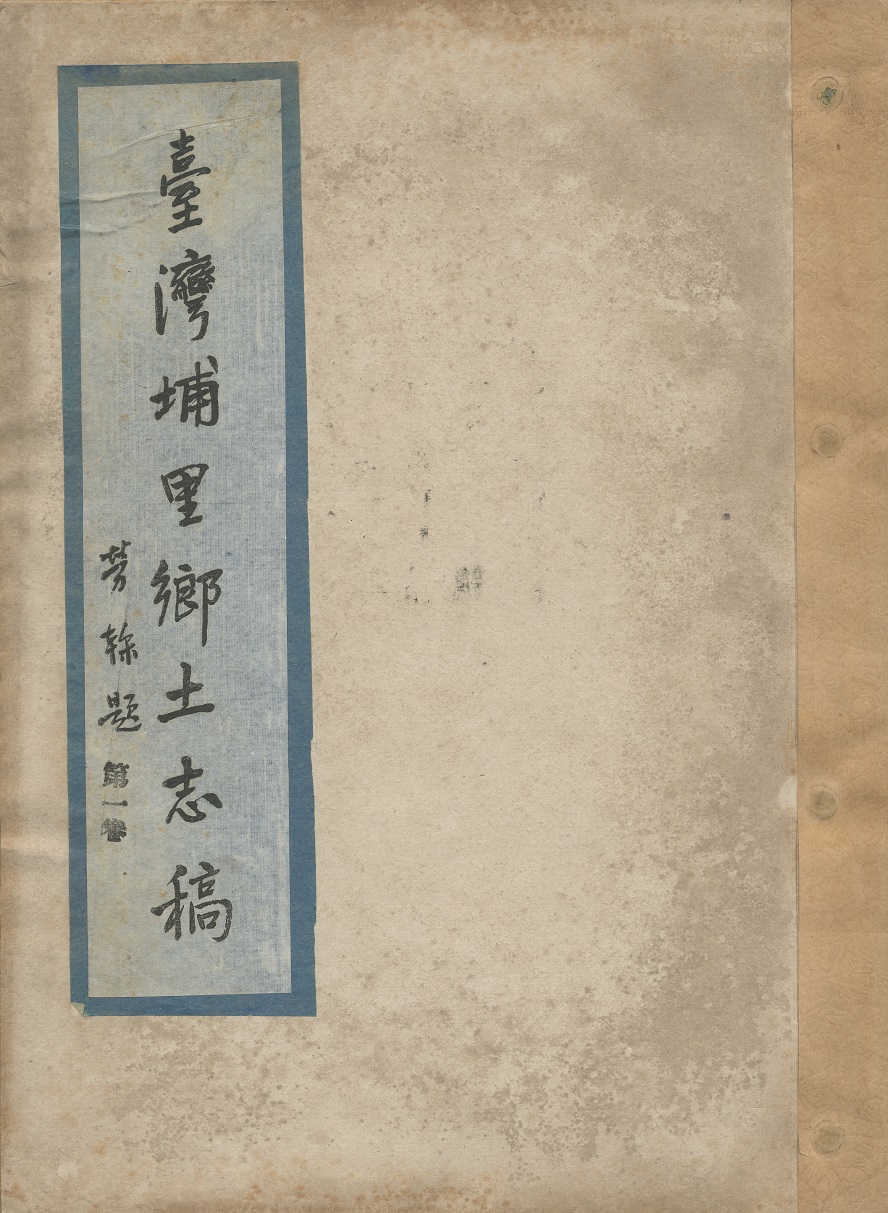 臺灣埔里鄉土志稿
勞榦題 第一卷